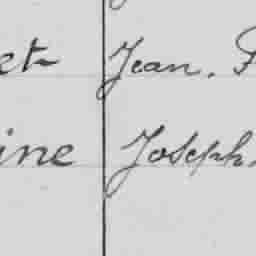 et Jean. F
ine Joseph.